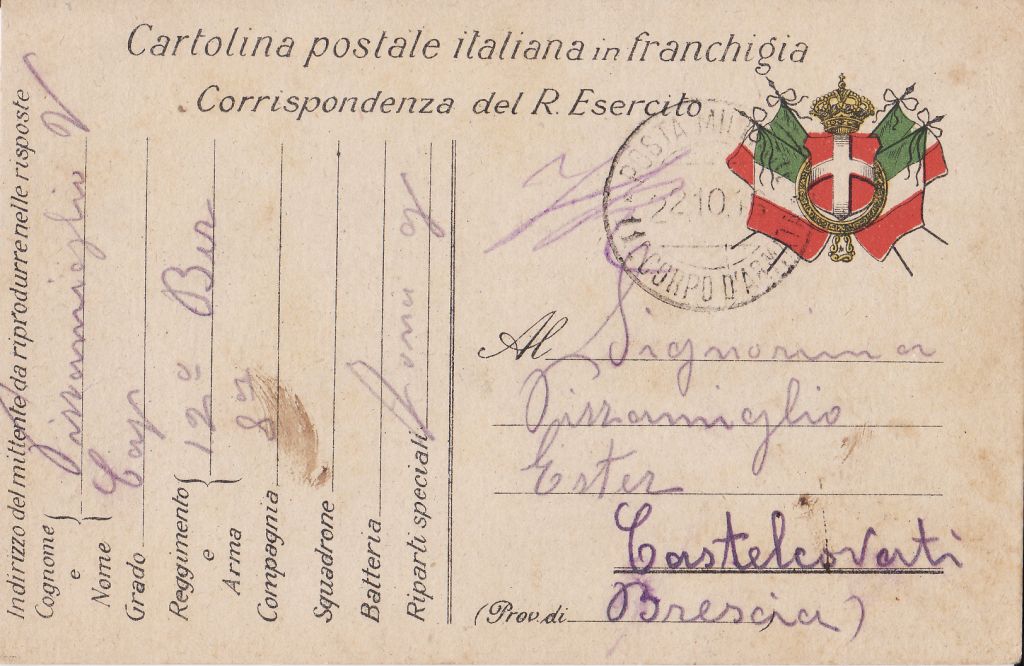 Cartolina postale italiana in franchigia
Corrispondenza del R. Esercito
POSTA MILI
22.10.1
CORPO D'ARM
Al Signorina
Pizzamiglio
Ester
Castelcovati
(Prov. di Brescia)
Indirizzo del mittente da riprodurre nelle risposte
Cognome e Nome Pizzamiglio
Grado Cap
Reggimento e Arma 12º Ber
Compagnia 8ª
Squadrone
Batteria
Riparti speciali Zona